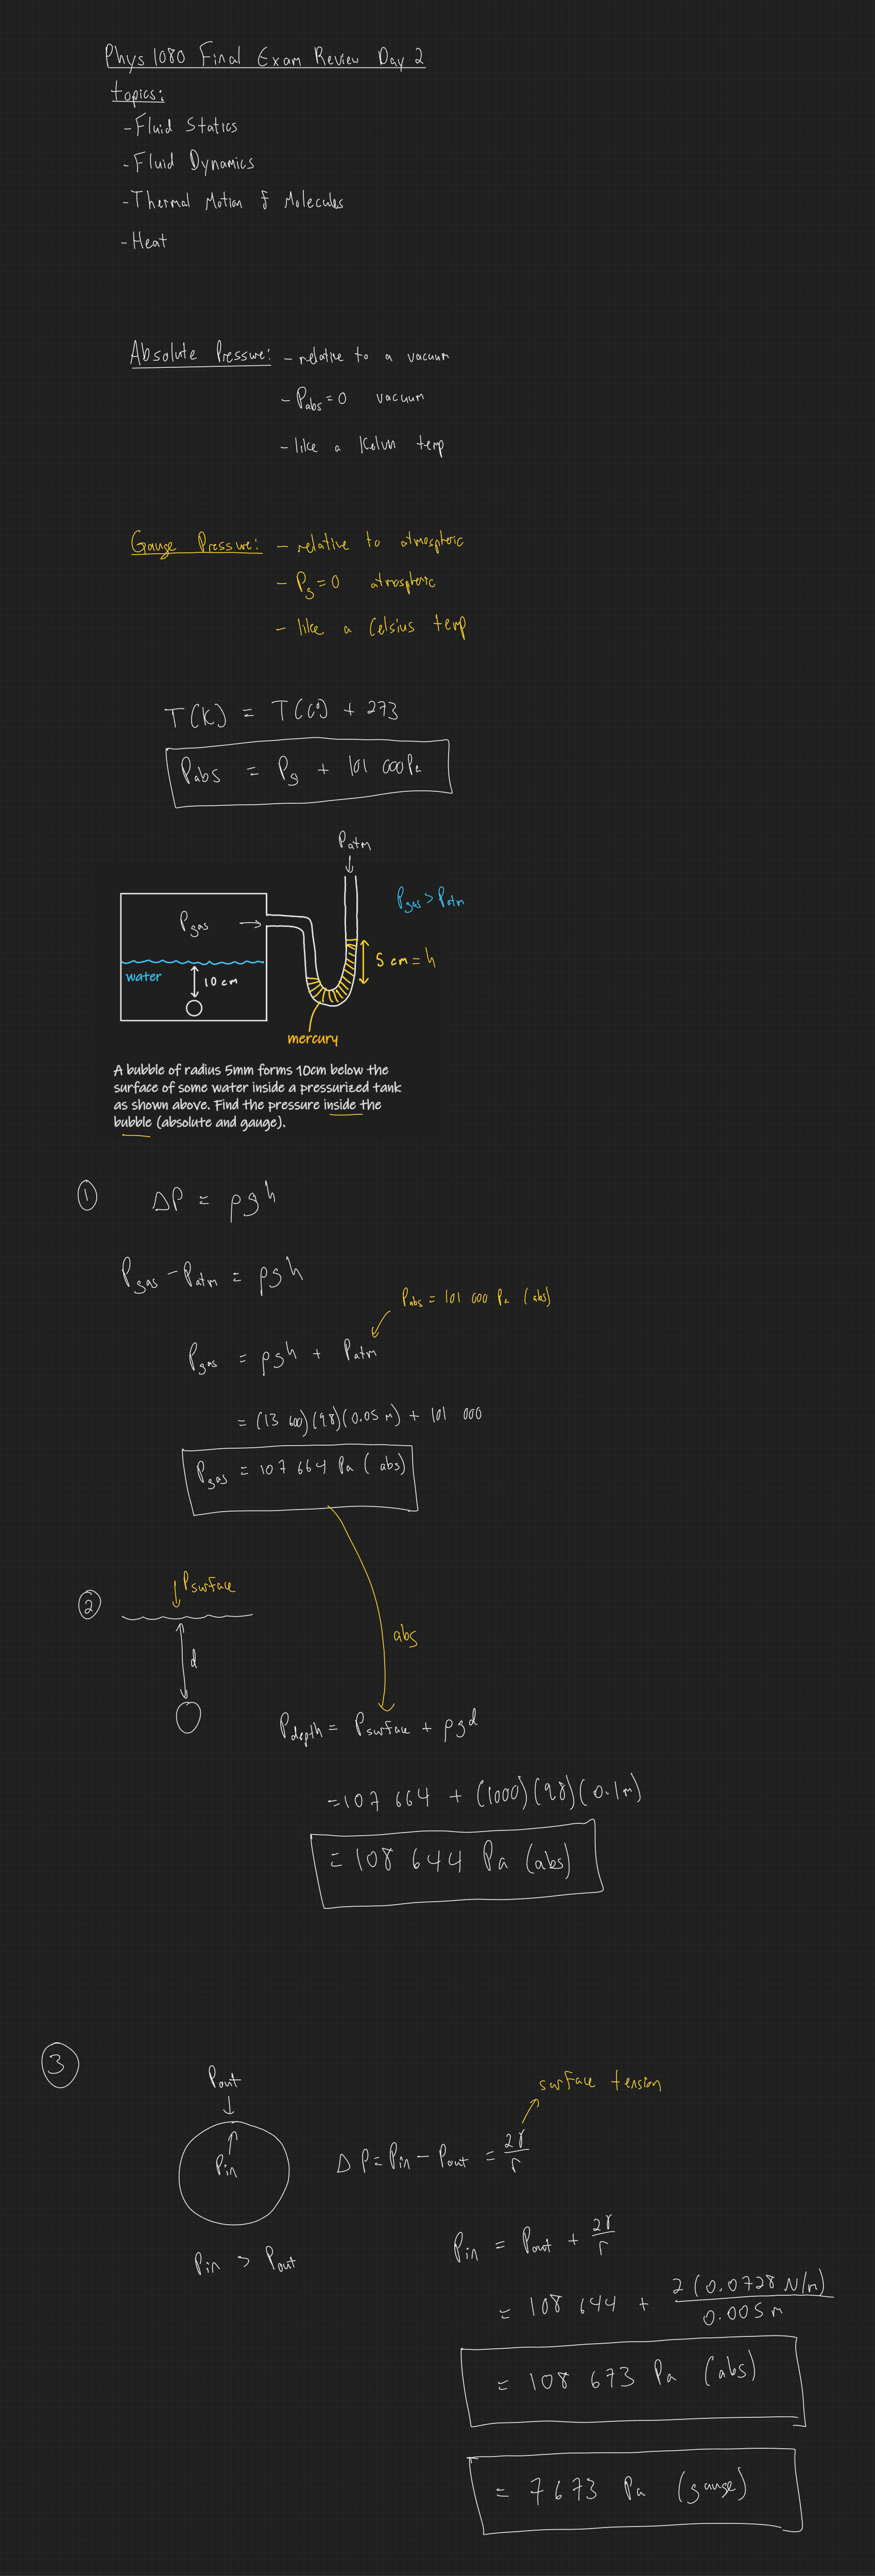 Phys 1080 Final Exam Review Day 2
topics:
- Fluid Statics
- Fluid Dynamics
- Thermal Motion of Molecules
- Heat
Absolute Pressure: - relative to a vacuum
- Pabs = 0 vacuum
- like a Kelvin temp
Gauge Pressure: - relative to atmospheric
- Pg = 0 atmospheric
- like a Celsius temp
T(K) = T(C°) + 273
Pabs = Pg + 101 000 Pa
Patm
Pgas → Pgas > Patm
water 10 cm 5 cm = h
mercury
A bubble of radius 5mm forms 10cm below the
surface of some water inside a pressurized tank
as shown above. Find the pressure inside the
bubble (absolute and gauge).
① ΔP = ρgh
Pgas - Patm = ρgh
Pabs = 101 000 Pa (abs)
Pgas = ρgh + Patm
= (13 600)(9.8)(0.05 m) + 101 000
Pgas = 107 664 Pa (abs)
② Psurface
abs
d
Pdepth = Psurface + ρgd
= 107 664 + (1000)(9.8)(0.1m)
= 108 644 Pa (abs)
③
Pout
surface tension
Pin
ΔP = Pin - Pout = 2γ/r
Pin > Pout
Pin = Pout + 2γ/r
= 108 644 + 2(0.0728 N/m)/0.005 m
= 108 673 Pa (abs)
= 7 673 Pa (gauge)